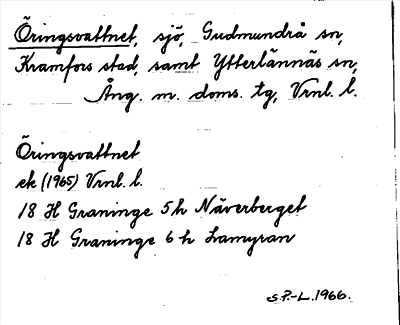 Öringsvattnet, sjö, Gudmundrå sn,
Kramfors stad, samt Ytterlännäs sn,
Ång. m. doms. tg, Vrnl. l.
Öringsvattnet
ek (1965) Vrnl. l.
18 H Graninge 5 h Näverberget
18 H Graninge 6 h Lamyran
S.P.-L. 1966.